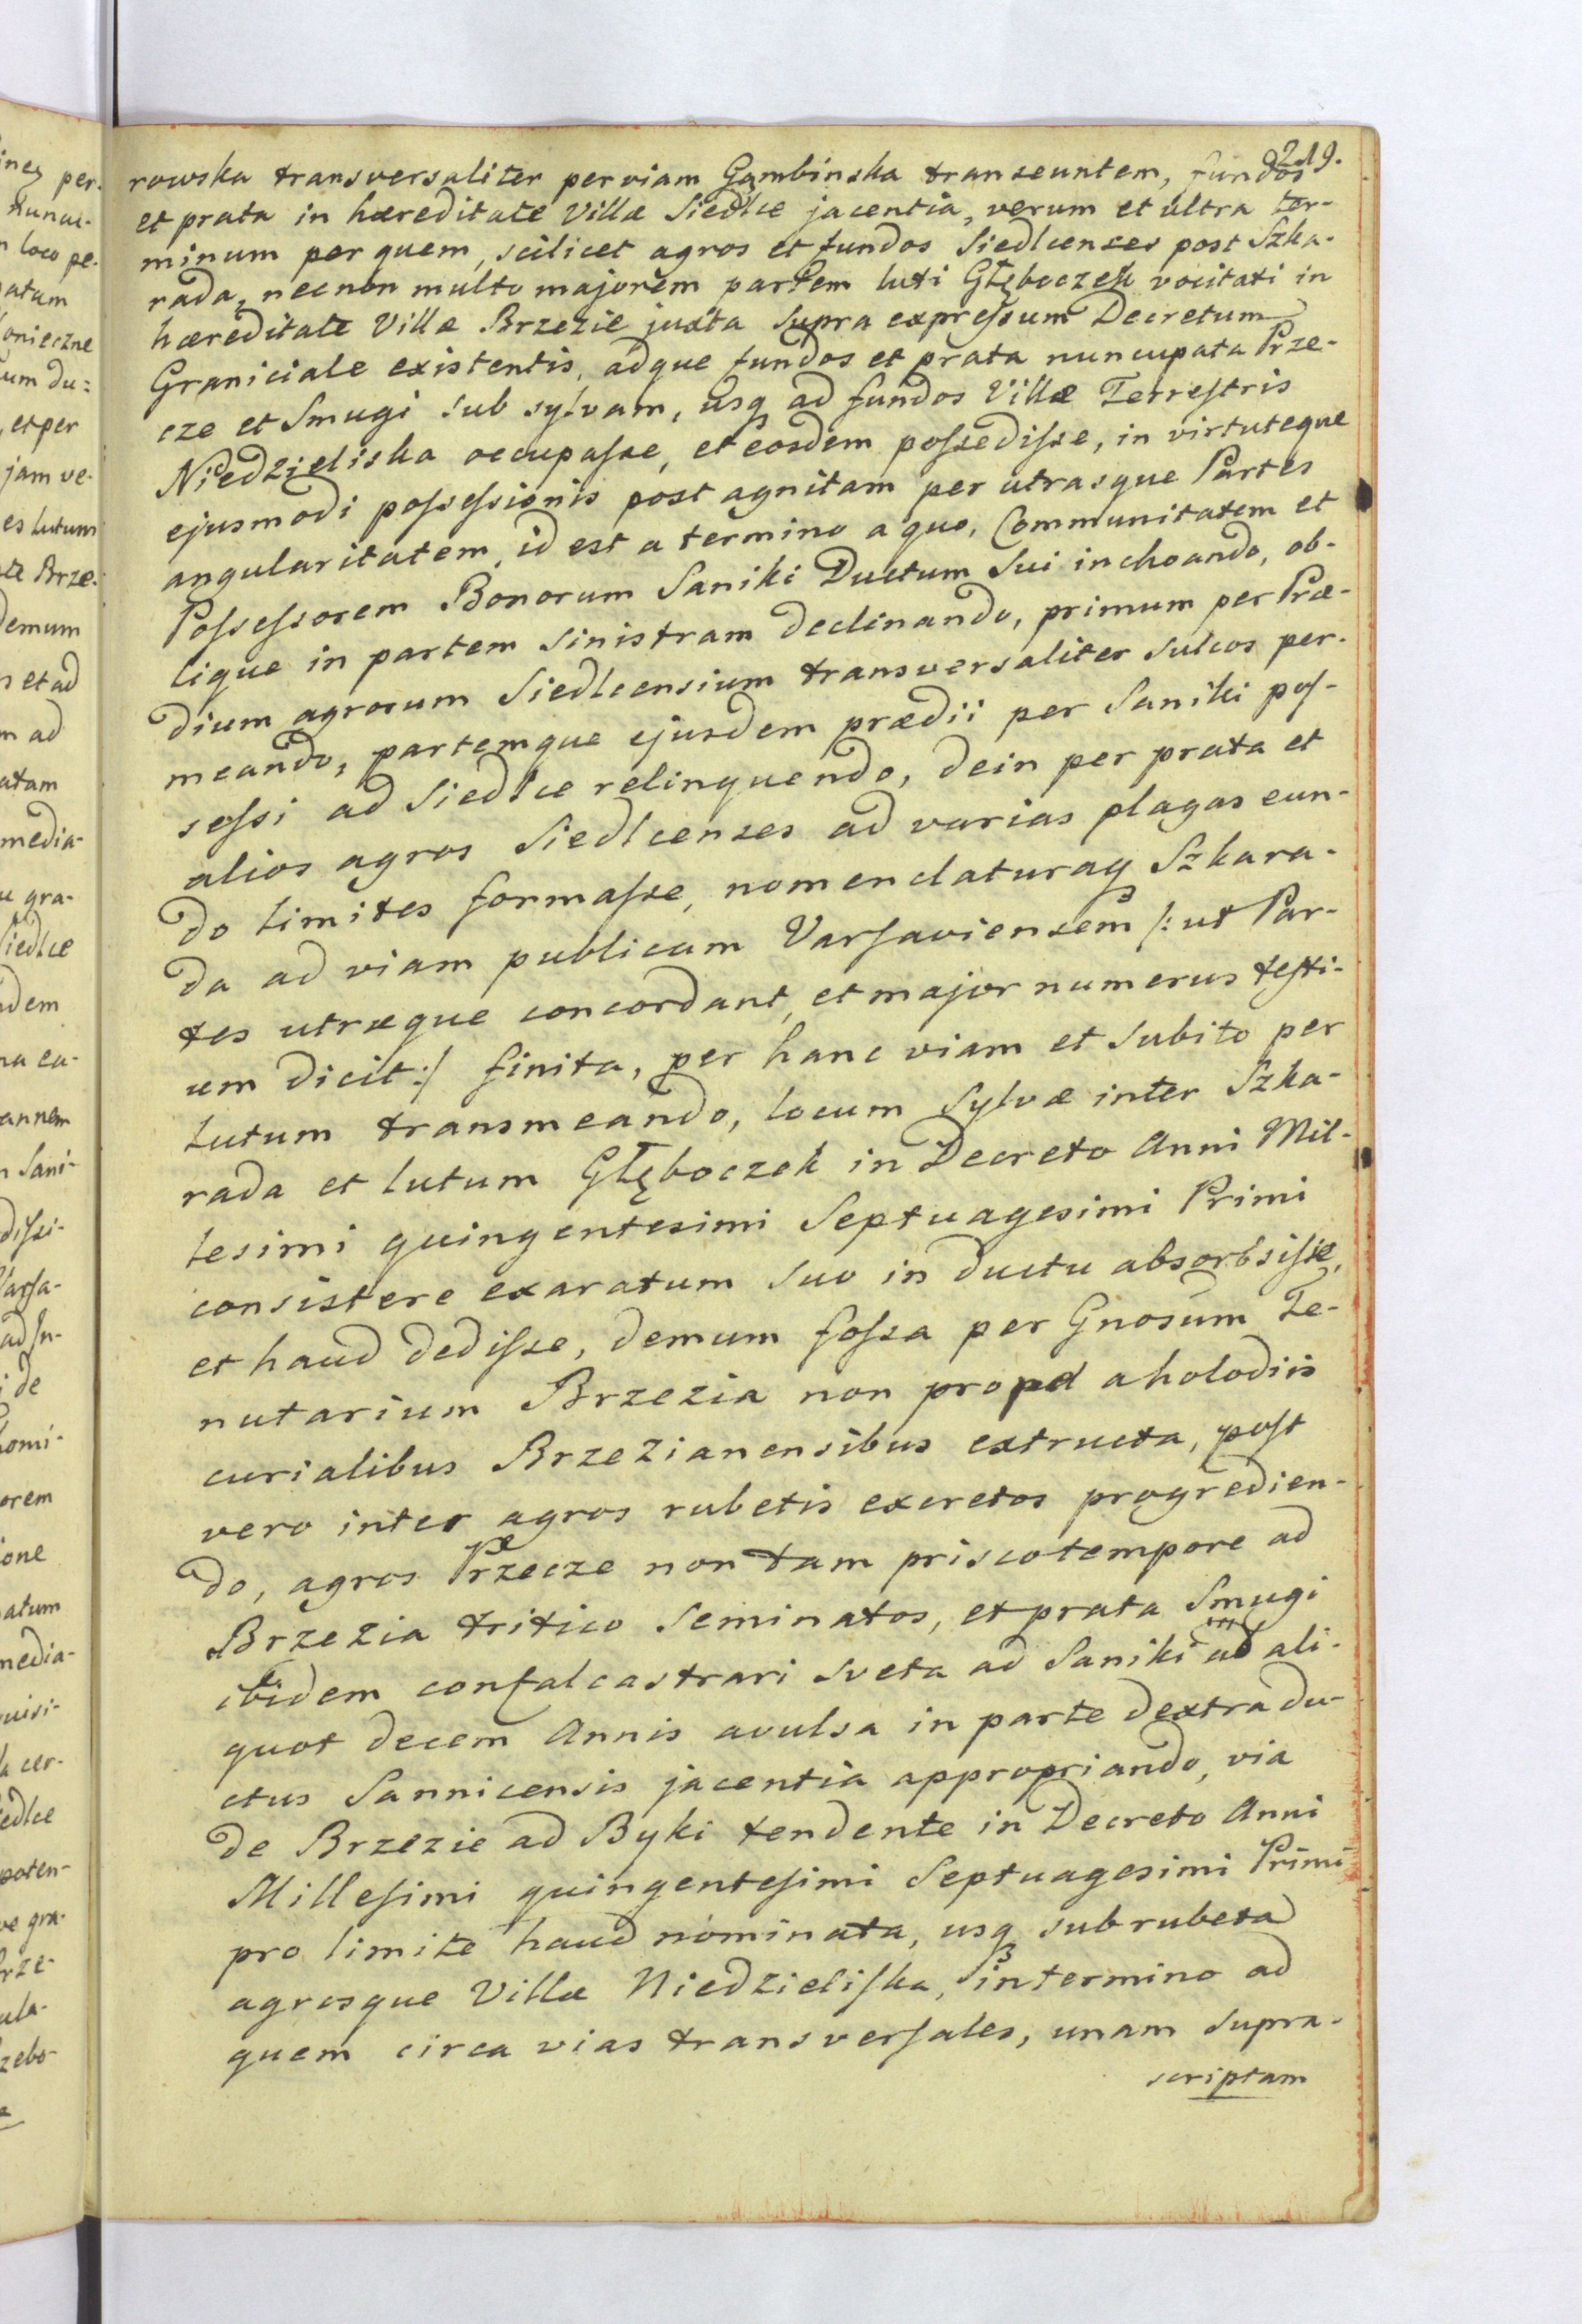 219.
rowska transversaliter per viam Gąmbinska transeuntem, fundos
et prata in hæreditate Villæ Siedlce jacentia, verum et ultra ter-
minum per quem, scilicet agros et fundos Siedlcenses post Szka-
rada, necnon multo majorem partem luti Głęboczek vocitati in
hæreditate Villæ Brzezie juxta supra expressum Decretum
Graniciale existentis, adque fundos et prata nuncupata Prze-
cze et Smugi sub sylvam, usq ad fundos Villæ Terrestris
Niedzieliska occupasse, et eosdem possedisse, in virtuteque
ejusmodi possessionis post agnitam per utrasque Partes
angularitatem, id est a termino a quo, Communitatem et
Possessorem Bonorum Saniki Ductum Sui inchoando, ob-
lique in partem sinistram declinando, primum per Præ-
dium agrorum Siedlcensium transversaliter sulcos per-
meando, partemque ejusdem prædii per Saniki pos-
sessi ad Siedlce relinquendo, dein per prata et
alios agros Siedlcenses ad varias plagas eun-
do limites formasse, nomenclaturaq Szkara-
da ad viam publicam Varsaviensem /: ut Par-
tes utræque concordant, et major numerus testi-
um dicit :/ finita, per hanc viam et subito per
lutum transmeando, locum sylvæ inter Szka-
rada et lutum Głęboczek in Decreto Anni Mil-
lesimi quingentesimi Septuagesimi Primi
consistere exaratum suo in ductu absorbsisse,
et haud dedisse, demum fossa per Gnosum Te-
nutarium Brzezia non proped a holodiis
curialibus Brzezianensibus extructa, post
vero inter agros rubetis excretos progredien-
do, agros Przecze non tam prisco tempore ad
Brzezia tritico seminatos, et prata Smugi
ibidem confalcastrari sveta ad Saniki ab ali-
quot decem Annis avulsa in parte dextra du-
ctus Sannicensis jacentia appropriando, via
de Brzezie ad Byki tendente in Decreto Anni
Millesimi quingentesimi Septuagesimi Primi
pro limite haud nominata, usq sub rubeta
agrosque Villæ Niedzieliska, in termino ad
quem circa vias transversales, unam supra-
scriptam